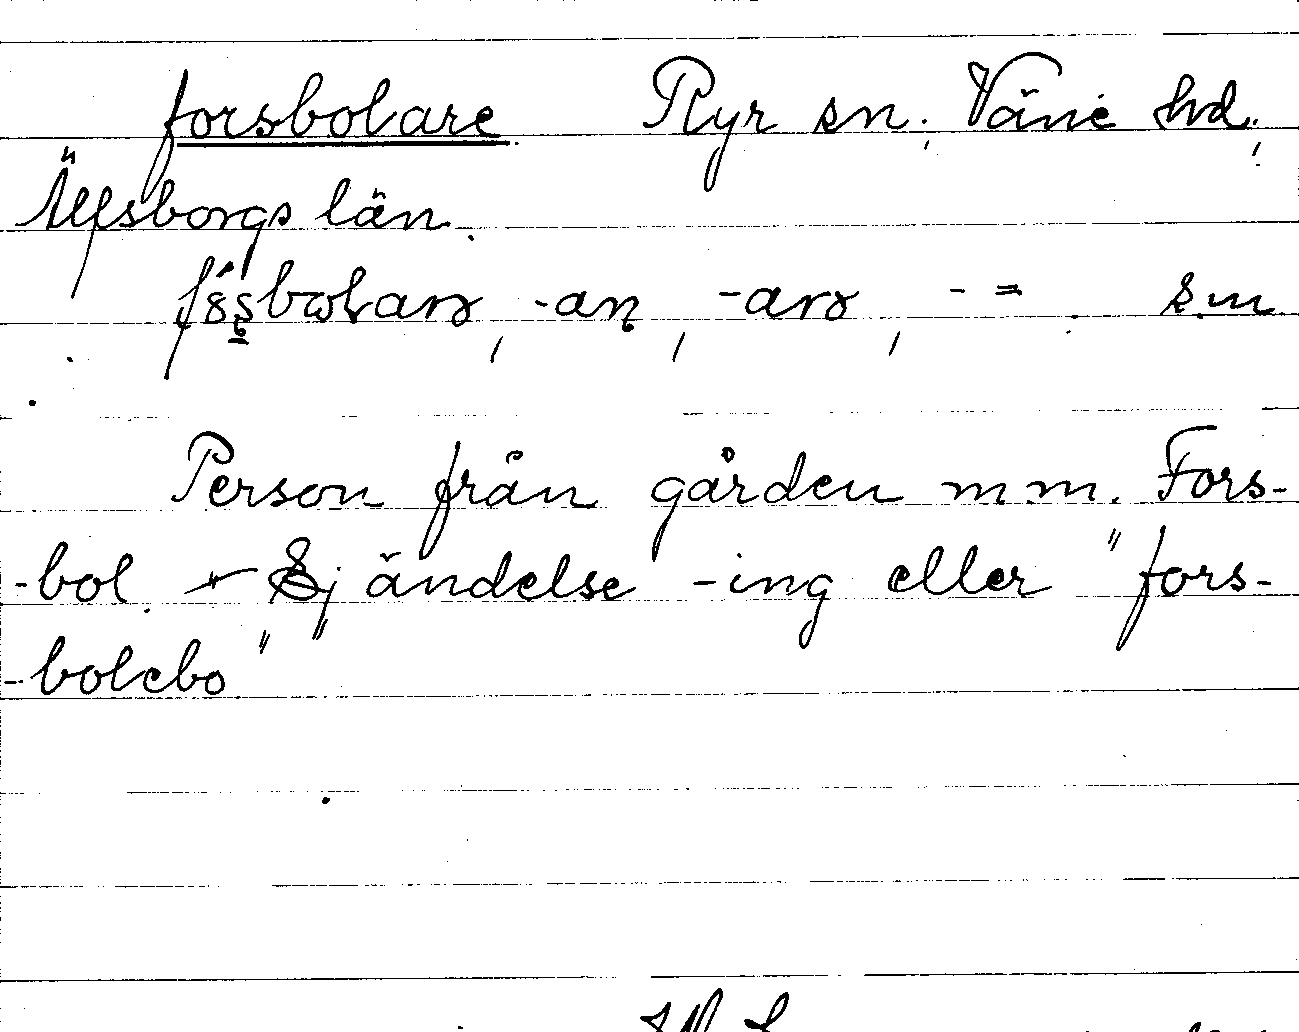 forsbolare Ryr sn, Väne hd,
Älfsborgs län.
-an, -arə, - = . s.m
Person från gården m m. Fors-
-bol. Ej ändelse -ing eller "fors-
-bolebo"